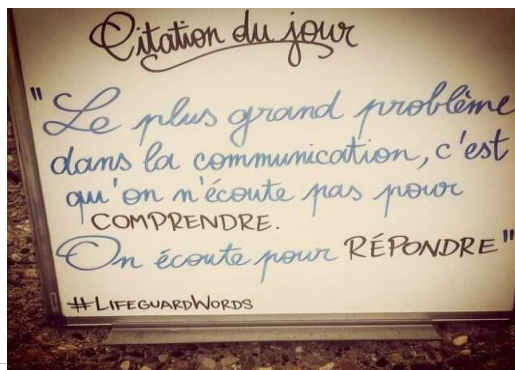 Citation du jour
"Le plus grand problème
dans la communication, c'est
qu'on n'écoute pas pour
COMPRENDRE.
On écoute pour RÉPONDRE"
#LIFEGUARDWORDS